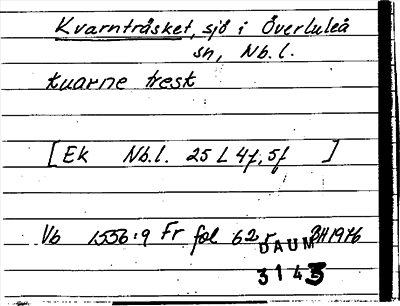 Kvarnträsket, sjö i Överluleå
sn, Nb.l.
kuarne trest
[Ek Nb.l. 25 L 4f, 5f ]
Vb 1556:9 Fr fol 62 r BH1976
DAUM
3143